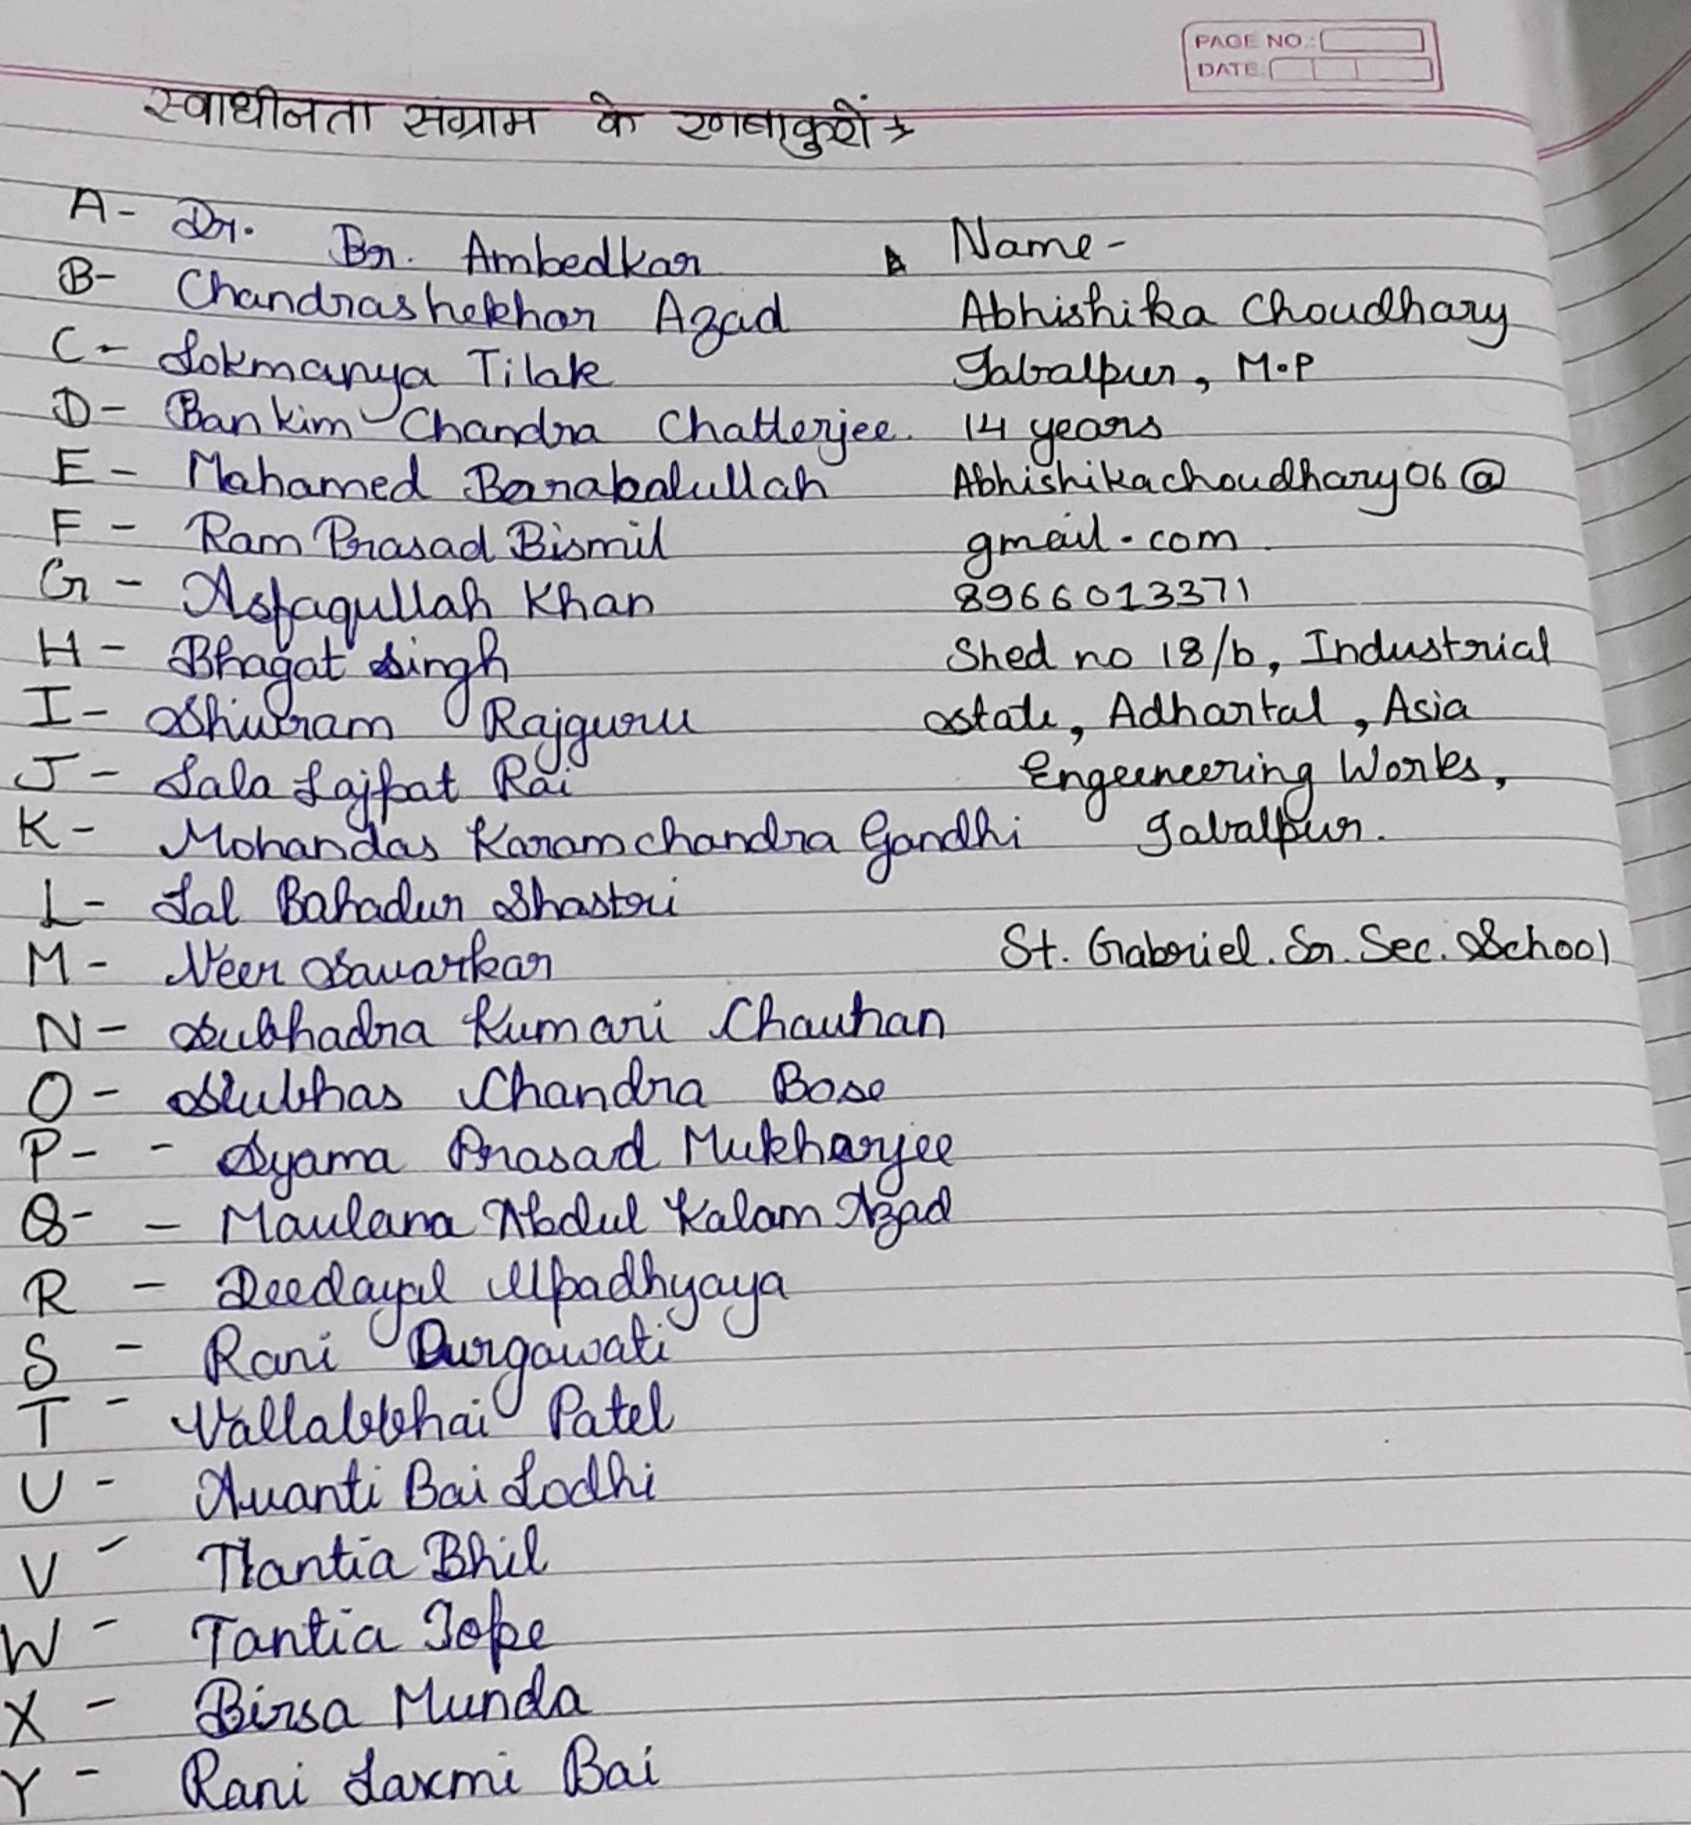 PAGE NO.:
DATE:
स्वाधीनता संग्राम के रणबाकुरों →
A - Dr. Br. Ambedkar
B- Chandrashekhar Azad
C - Lokmanya Tilak
D - Bankim Chandra Chatterjee.
E - Mahamed Barabatullah
F - Ram Prasad Bismil
G - Asfaqullah Khan
H - Bhagat Singh
I - Shivram Rajguru
J - Lala Lajpat Rai
K - Mohandas Karamchandra Gandhi
L - Lal Bahadur Shastri
M - Veer Savarkar
N - Subhadra Kumari Chauhan
O - Subhas Chandra Bose
P - - Syama Prasad Mukharjee
Q - - Maulana Abdul Kalam Azad
R - Deedayal Upadhyaya
S - Rani Durgawati
T - Vallabbhai Patel
U - Avanti Bai Lodhi
V - Tantia Bhil
W - Tantia Tope
X - Birsa Munda
Y - Rani Laxmi Bai
Name -
Abhishika Choudhary
Jabalpur, M.P
14 years
Abhishikachoudhary06@
gmail.com
8966013371
Shed no 18/b, Industrial
state, Adhartal, Asia
Engeeneering Works,
Jabalpur.
St. Gabriel. Sr. Sec. School